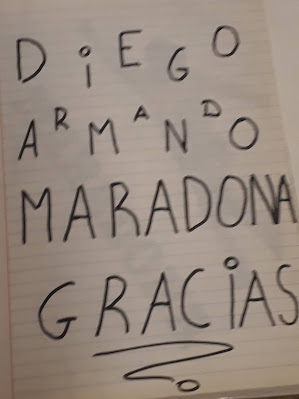 DiEGO
ARMANDO
MARADONA
GRACiAS